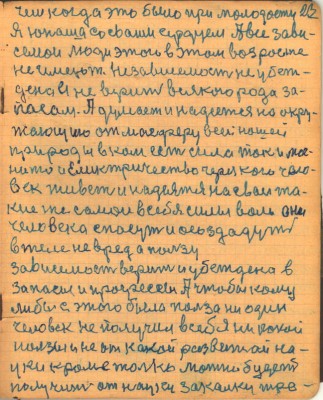 чем когда это было при молодости 212
Я юноша со свами сердцем А все зави-
семой люди этого в этом возросте
не имеют. Независемость не убеж-
дена и не верит всякого рода за-
пасам. А думает и надеется на окру-
жающию атмосферу всей нашей
природы в ком есть сила тока ма-
гнито и Електричество через кого чело-
век живет и надеятся на сваи та-
кие же самои в себя силы воль они
человека спасут и оеоздадут
в теле не вред а ползу
зависемост верит и убеждена в
запасы и прогрессы А чтобы кому
либы с этого была полза ни один
человек не получил в себя никокой
ползы не от какой развитой на-
уки кроме толко можна будет
получит от науки закалки тре-